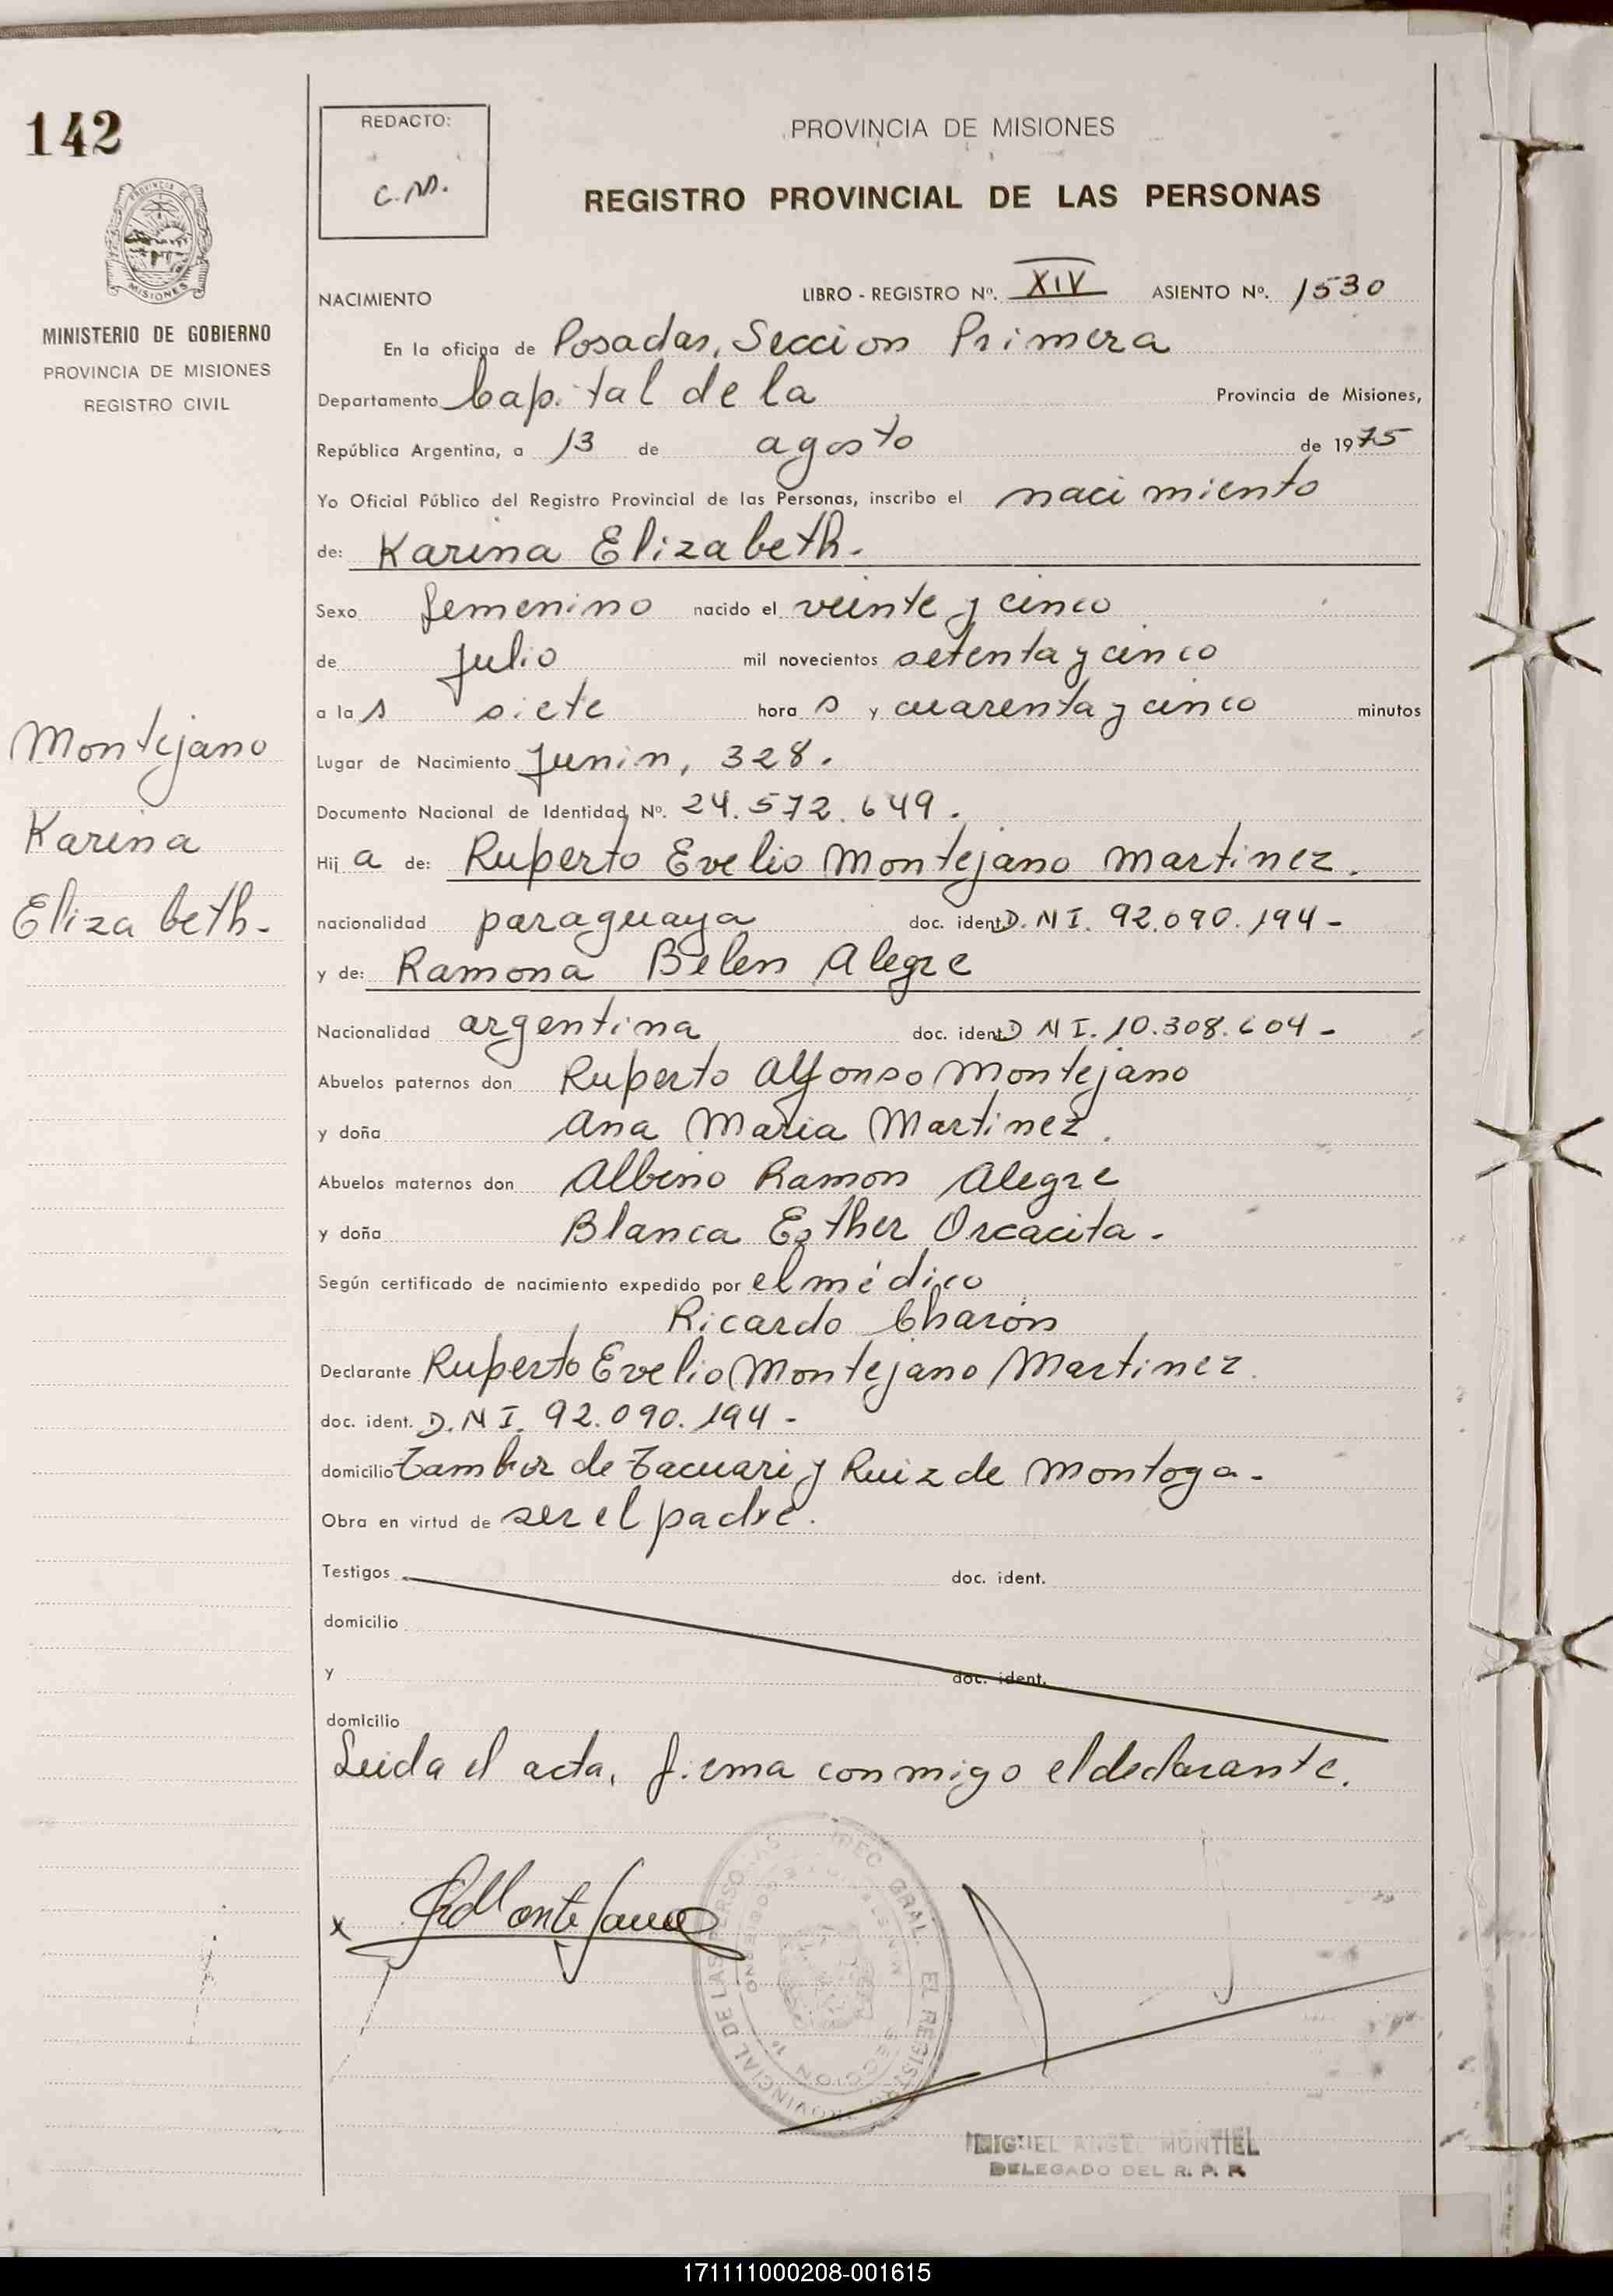 142
REDACTO:
C.M.
PROVINCIA DE MISIONES
REGISTRO PROVINCIAL DE LAS PERSONAS
PROVINCIA DE
MISIONES
MINISTERIO DE GOBIERNO
PROVINCIA DE MISIONES
REGISTRO CIVIL
NACIMIENTO
LIBRO - REGISTRO Nº. XIV ASIENTO Nº. 1530
En la oficina de Posadas, Seccion Primera
Departamento Capital de la Provincia de Misiones,
República Argentina, a 13 de agosto de 1975
Yo Oficial Público del Registro Provincial de las Personas, inscribo el nacimiento
de: Karina Elizabeth.
Sexo femenino nacido el veinte y cinco
de julio mil novecientos setenta y cinco
a las siete horas y cuarenta y cinco minutos
Montejano
Karina
Elizabeth.
Lugar de Nacimiento Junin, 328.
Documento Nacional de Identidad Nº. 24.572.649.
Hija de: Ruperto Evelio Montejano Martinez.
nacionalidad paraguaya doc. ident. D.N I. 92.090.194-
y de: Ramona Belen Alegre
Nacionalidad argentina doc. ident. D N I. 10.308.604-
Abuelos paternos don Ruperto Alfonso Montejano
y doña Ana Maria Martinez.
Abuelos maternos don Albino Ramon Alegre
y doña Blanca Esther Orcacita.
Según certificado de nacimiento expedido por el médico
Ricardo Charón
Declarante Ruperto Evelio Montejano Martinez.
doc. ident. D.N I. 92.090.194-
domicilio Tambor de Tacuari y Ruiz de Montoga-
Obra en virtud de ser el padre.
Testigos doc. ident.
domicilio
y doc. ident.
domicilio
Leida el acta, firma conmigo el declarante.
x
MIGUEL ANGEL MONTIEL
DELEGADO DEL R. P. P.
171111000208-001615